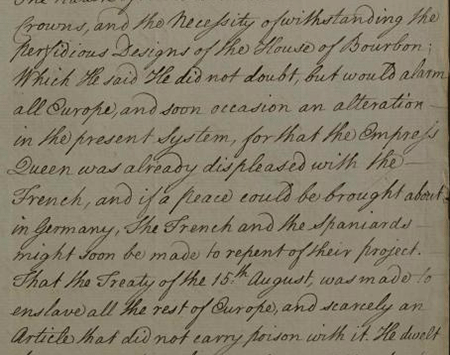 Crowns, and the Necessity of withstanding the
Perfidious Designs of the House of Bourbon;
Which He said He did not doubt, but would alarm
all Europe, and soon occasion an alteration
in the present System, for that the Empress
Queen was already displeased with the
French, and if a peace could be brought about
in Germany, The French and the Spaniards
might soon be made to repent of their project.
That the Treaty of the 15th August, was made to
enslave all the rest of Europe, and scarcely an
Article that did not carry poison with it. He dwelt